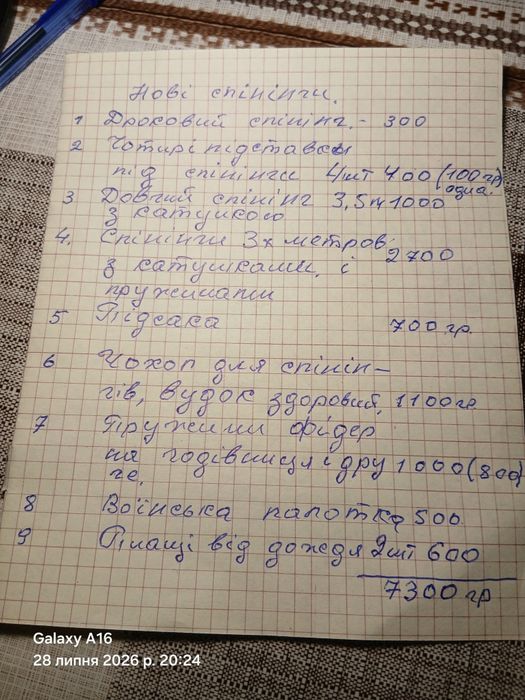 Нові спінінги.
1 Дроковий спінінг. - 300
2 Чотирі підставки
під спінінги 4шт 400 (100гр
одна.
3 Довгий спінінг 3,5м 1000
з катушкою
4. Спінінги 3х метров. 2700
з катушками, і
пружинами
5 Підсака 700 гр.
6 Чохол для спінін-
гів, вудок здоровий, 1100гр
7 Пружини фідер
на годівниця і дру 1000 (800)
ге.
8 Воїнська палотка 500
9 Плащі від дождя 2шт 600
7300 гр
Galaxy A16
28 липня 2026 р. 20:24